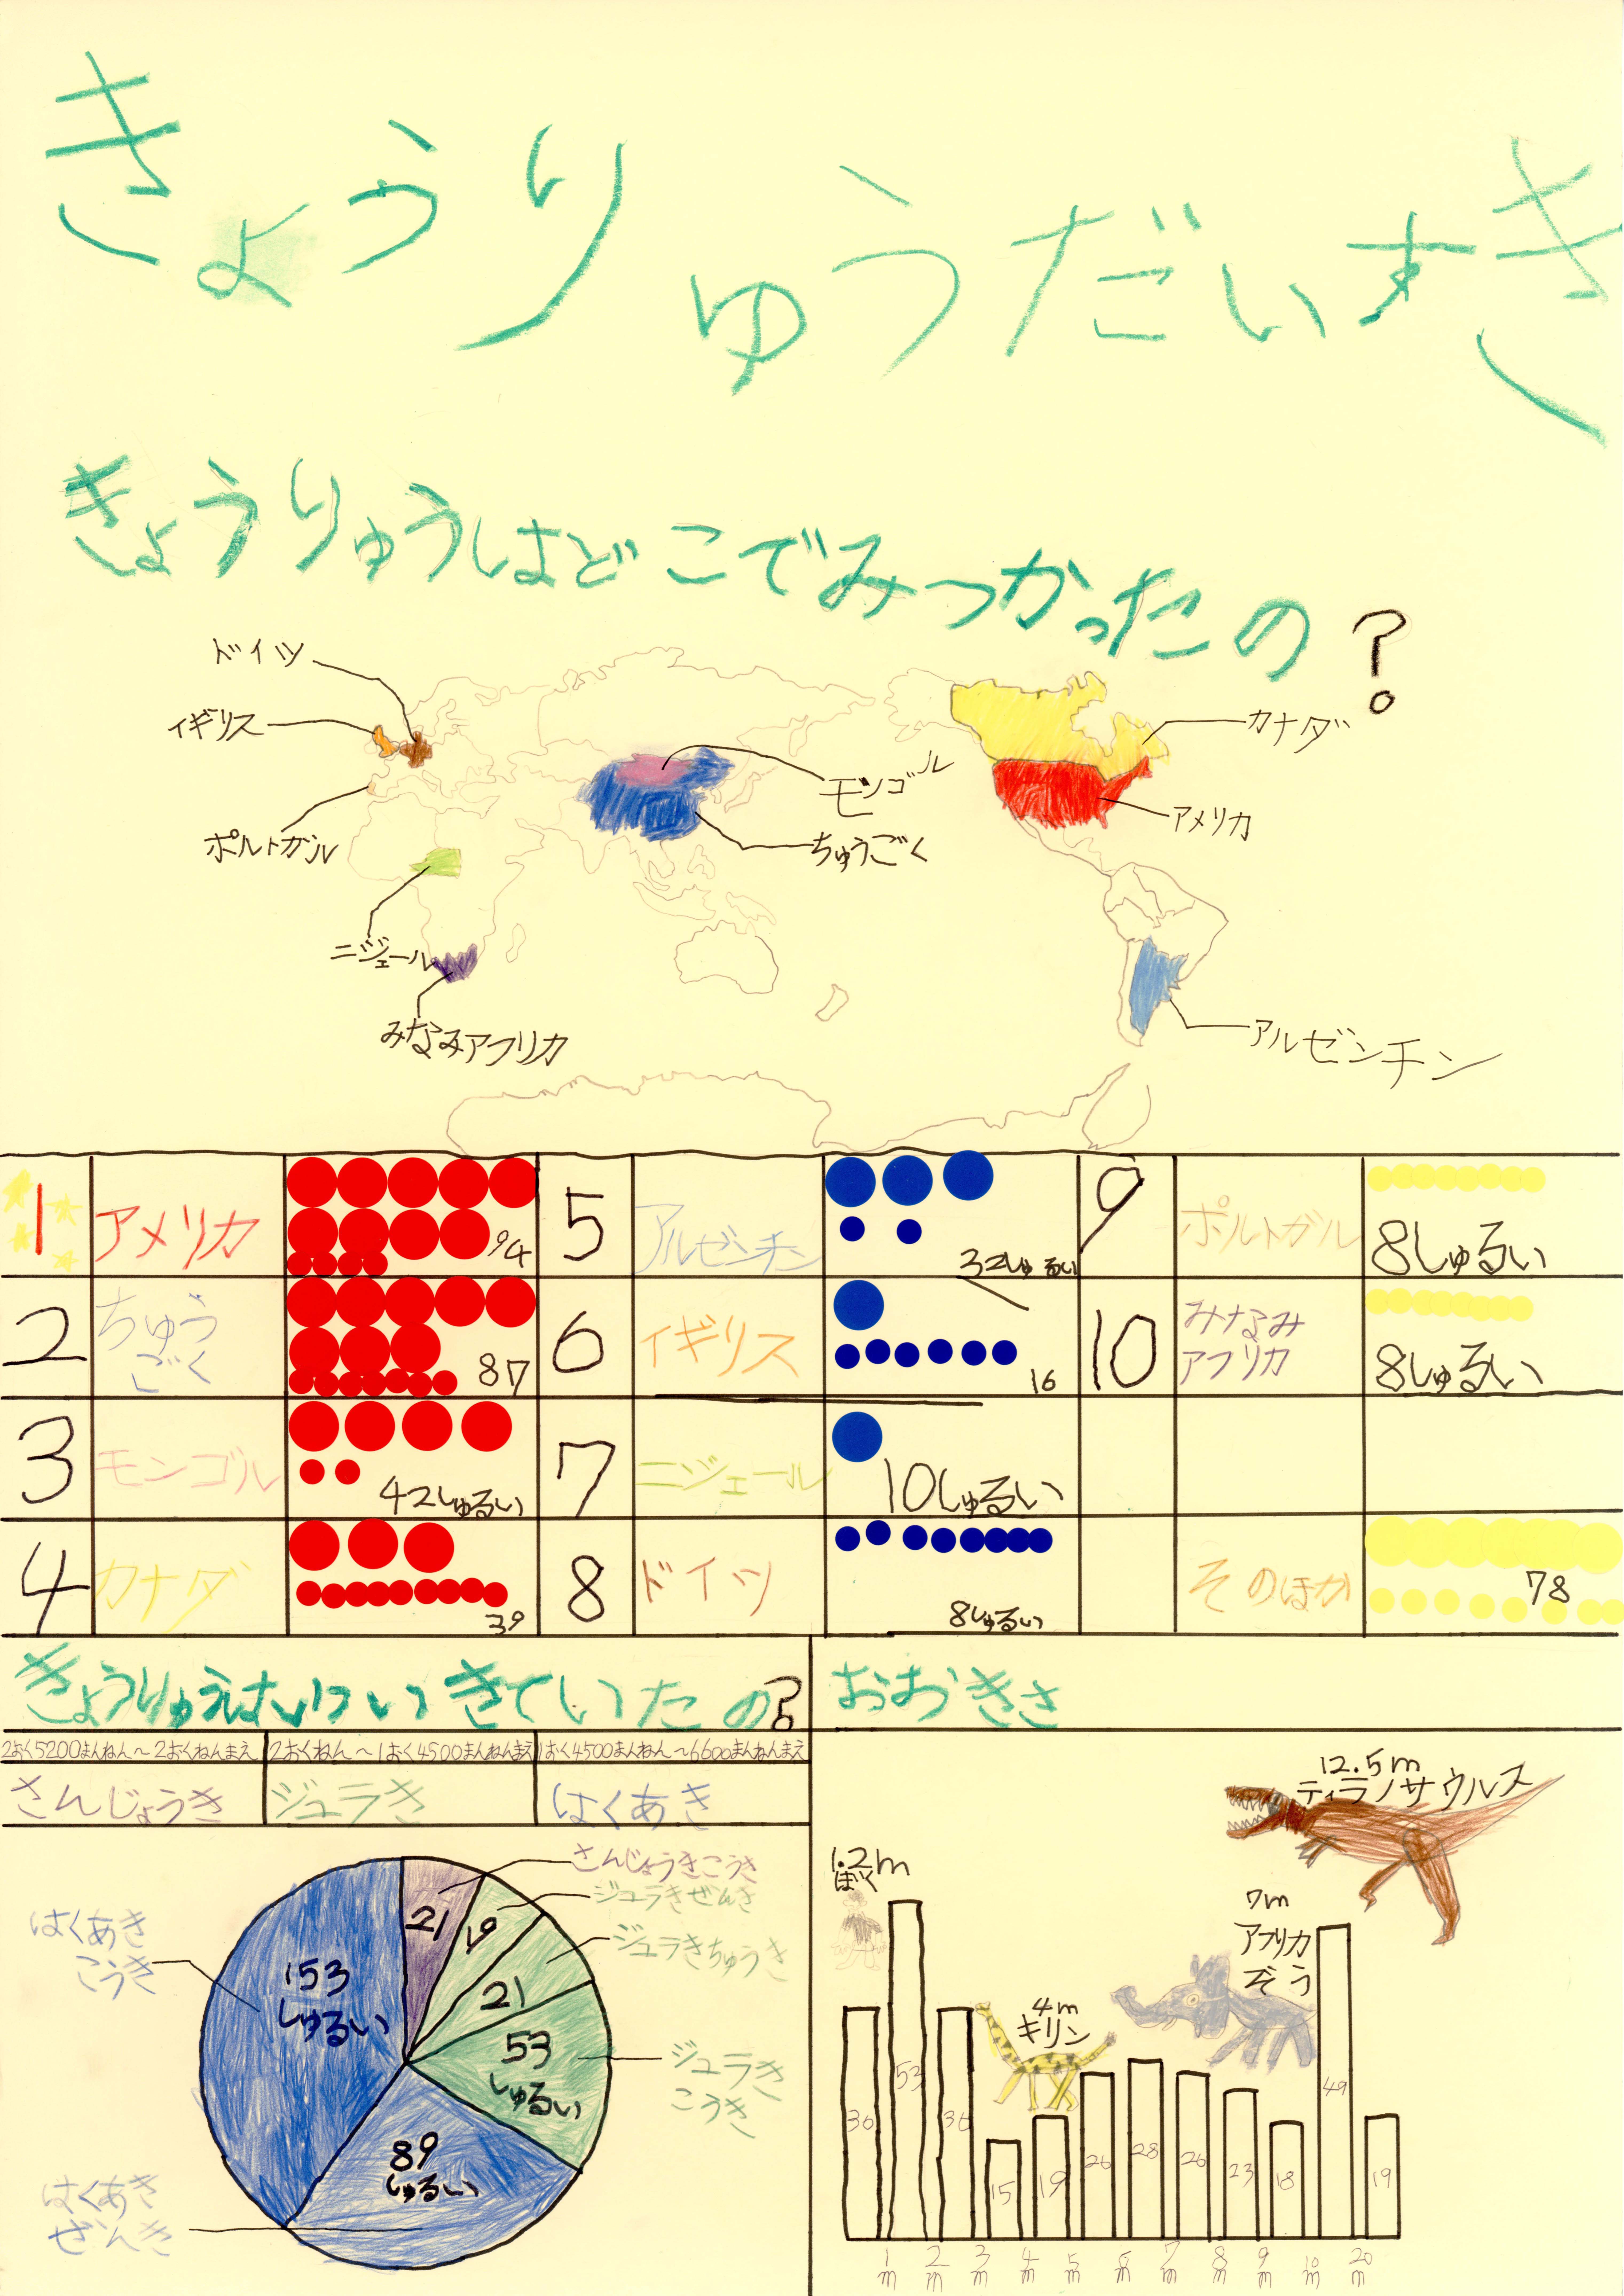 きょうりゅうだいすき
きょうりゅうはどこでみつかったの?
ドイツ
イギリス
ポルトガル
ニジェール
みなみアフリカ
モンゴル
ちゅうごく
カナダ
アメリカ
アルゼンチン
1 アメリカ 94
2 ちゅうごく 87
3 モンゴル 42しゅるい
4 カナダ 39
5 アルゼンチン 32しゅるい
6 イギリス 16
7 ニジェール 10しゅるい
8 ドイツ 8しゅるい
9 ポルトガル 8しゅるい
10 みなみアフリカ 8しゅるい
そのほか 78
きょうりゅうはいついきていたの?
2おく5200まんねん~2おくねんまえ
2おくねん~1おく4500まんねんまえ
1おく4500まんねん~6600まんねんまえ
さんじょうき
ジュラき
はくあき
さんじょうきこうき
21
ジュラきぜんき
19
ジュラきちゅうき
21
ジュラき
こうき
53
しゅるい
はくあき
ぜんき
89
しゅるい
はくあき
こうき
153
しゅるい
おおきさ
1.2m
ぼく
4m
キリン
7m
アフリカ
ぞう
12.5m
ティラノサウルス
36 53 36 15 19 26 28 26 23 18 49 19
1m 2m 3m 4m 5m 6m 7m 8m 9m 10m 20m